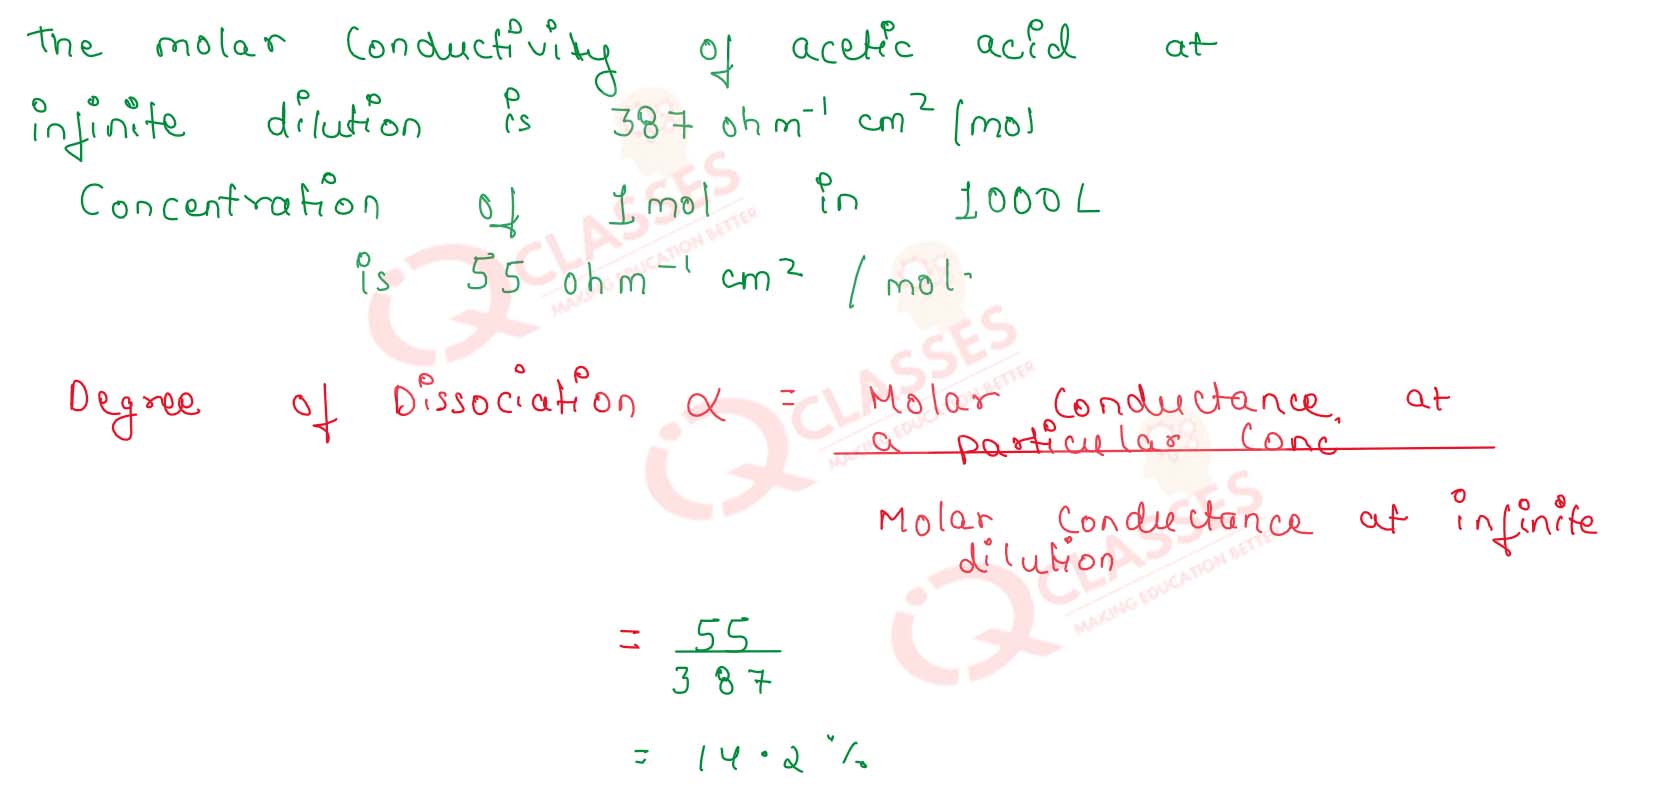 The molar conductivity of acetic acid at
infinite dilution is 387 ohm⁻¹ cm² /mol
Concentration of 1 mol in 1000 L
is 55 ohm⁻¹ cm² / mol.
Degree of Dissociation α = Molar conductance at
a particular conc
Molar conductance at infinite
dilution
= 55
387
= 14.2 %
iQ CLASSES
MAKING EDUCATION BETTER
iQ CLASSES
MAKING EDUCATION BETTER
iQ CLASSES
MAKING EDUCATION BETTER